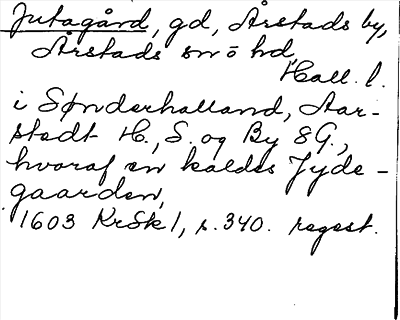 Jutagård, gd, Årstads by,
Årstads sn o hd,
Hall. l.
i Sønderhalland, Aar-
stedt H., S. og By 8 G.,
hvoraf en kaldes Jyde-
gaarden,
1603 KrSk 1, s. 340. regest.